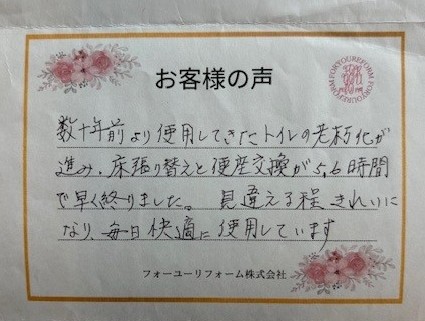 お客様の声
FORYOUREFORM FORYOUREFORM
数十年前より使用してきたトイレの老朽化が
進み、床張り替えと便座交換が5,6時間
で早く終りました。 見違える程きれいに
なり、毎日快適に使用しています
フォーユーリフォーム株式会社